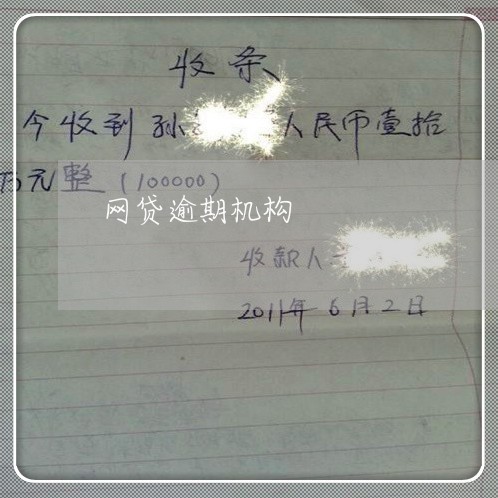 收条
今收到孙 人民币壹拾
万元整（100000）
网贷逾期机构
收款人
2011年6月2日